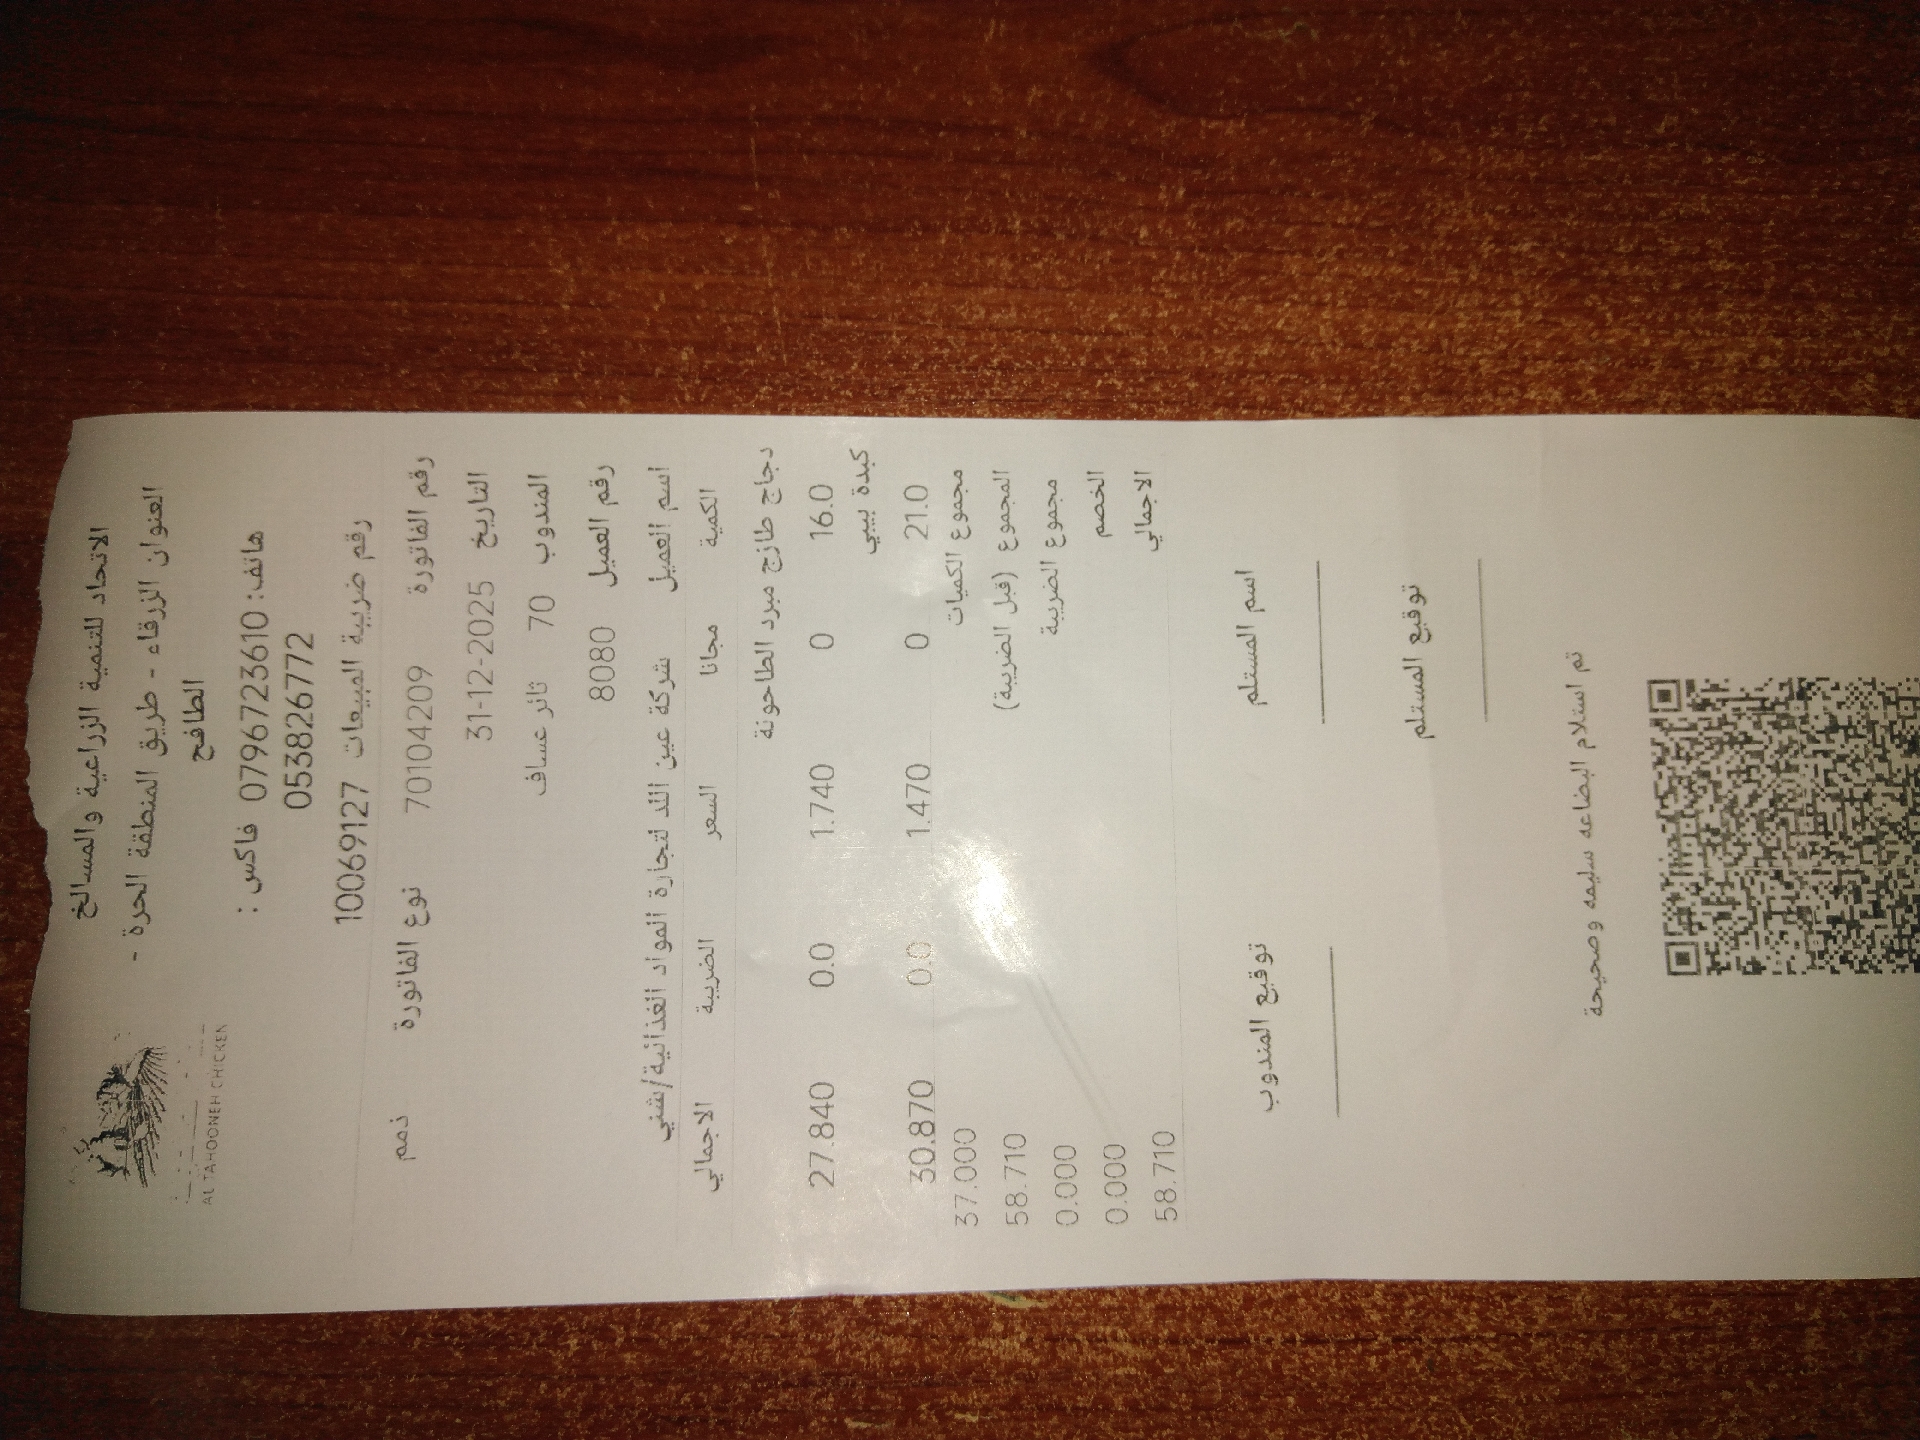 الاتحاد للتنمية الزراعية والمسالخ
العنوان الزرقاء - طريق المنطقة الحرة -
الطافح
هاتف: 0796723610 فاكس :
053826772
AL TAHOONEH CHICKEN
رقم ضريبة المبيعات 10069127
رقم الفاتورة 70104209 نوع الفاتورة ذمم
التاريخ 31-12-2025
المندوب 70 ثائر عساف
رقم العميل 8080
اسم العميل شركة عين اللد لتجارة المواد الغذائية/بشني
الكمية مجانا السعر الضريبة الاجمالي
دجاج طازج مبرد الطاحونة
16.0 0 1.740 0.0 27.840
كبدة بيبي
21.0 0 1.470 0.0 30.870
مجموع الكميات 37.000
المجموع (قبل الضريبة) 58.710
مجموع الضريبة 0.000
الخصم 0.000
الاجمالي 58.710
اسم المستلم توقيع المندوب
توقيع المستلم
تم استلام البضاعه سليمه وصحيحة